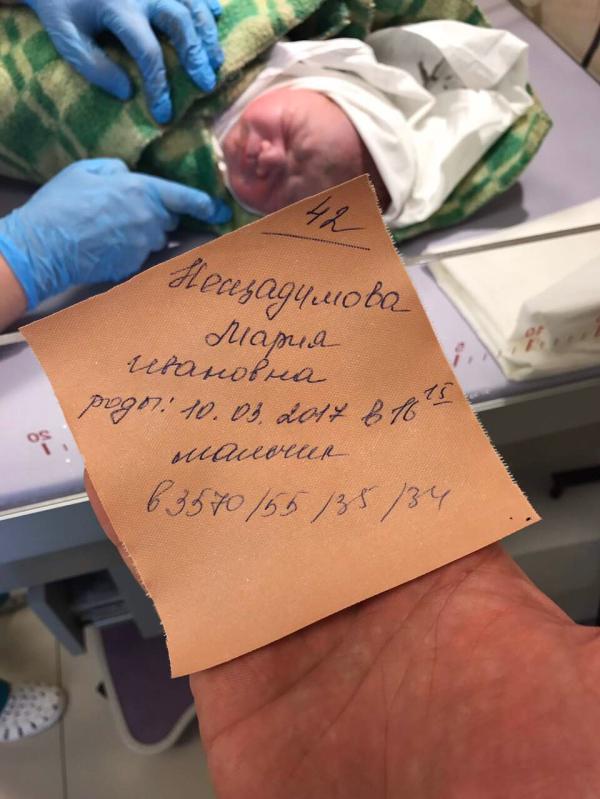 42
Незадимова
Мария
Ивановна
роды: 10.03.2017 в 16 15
мальчик
в 3570/55/35/34
20
10